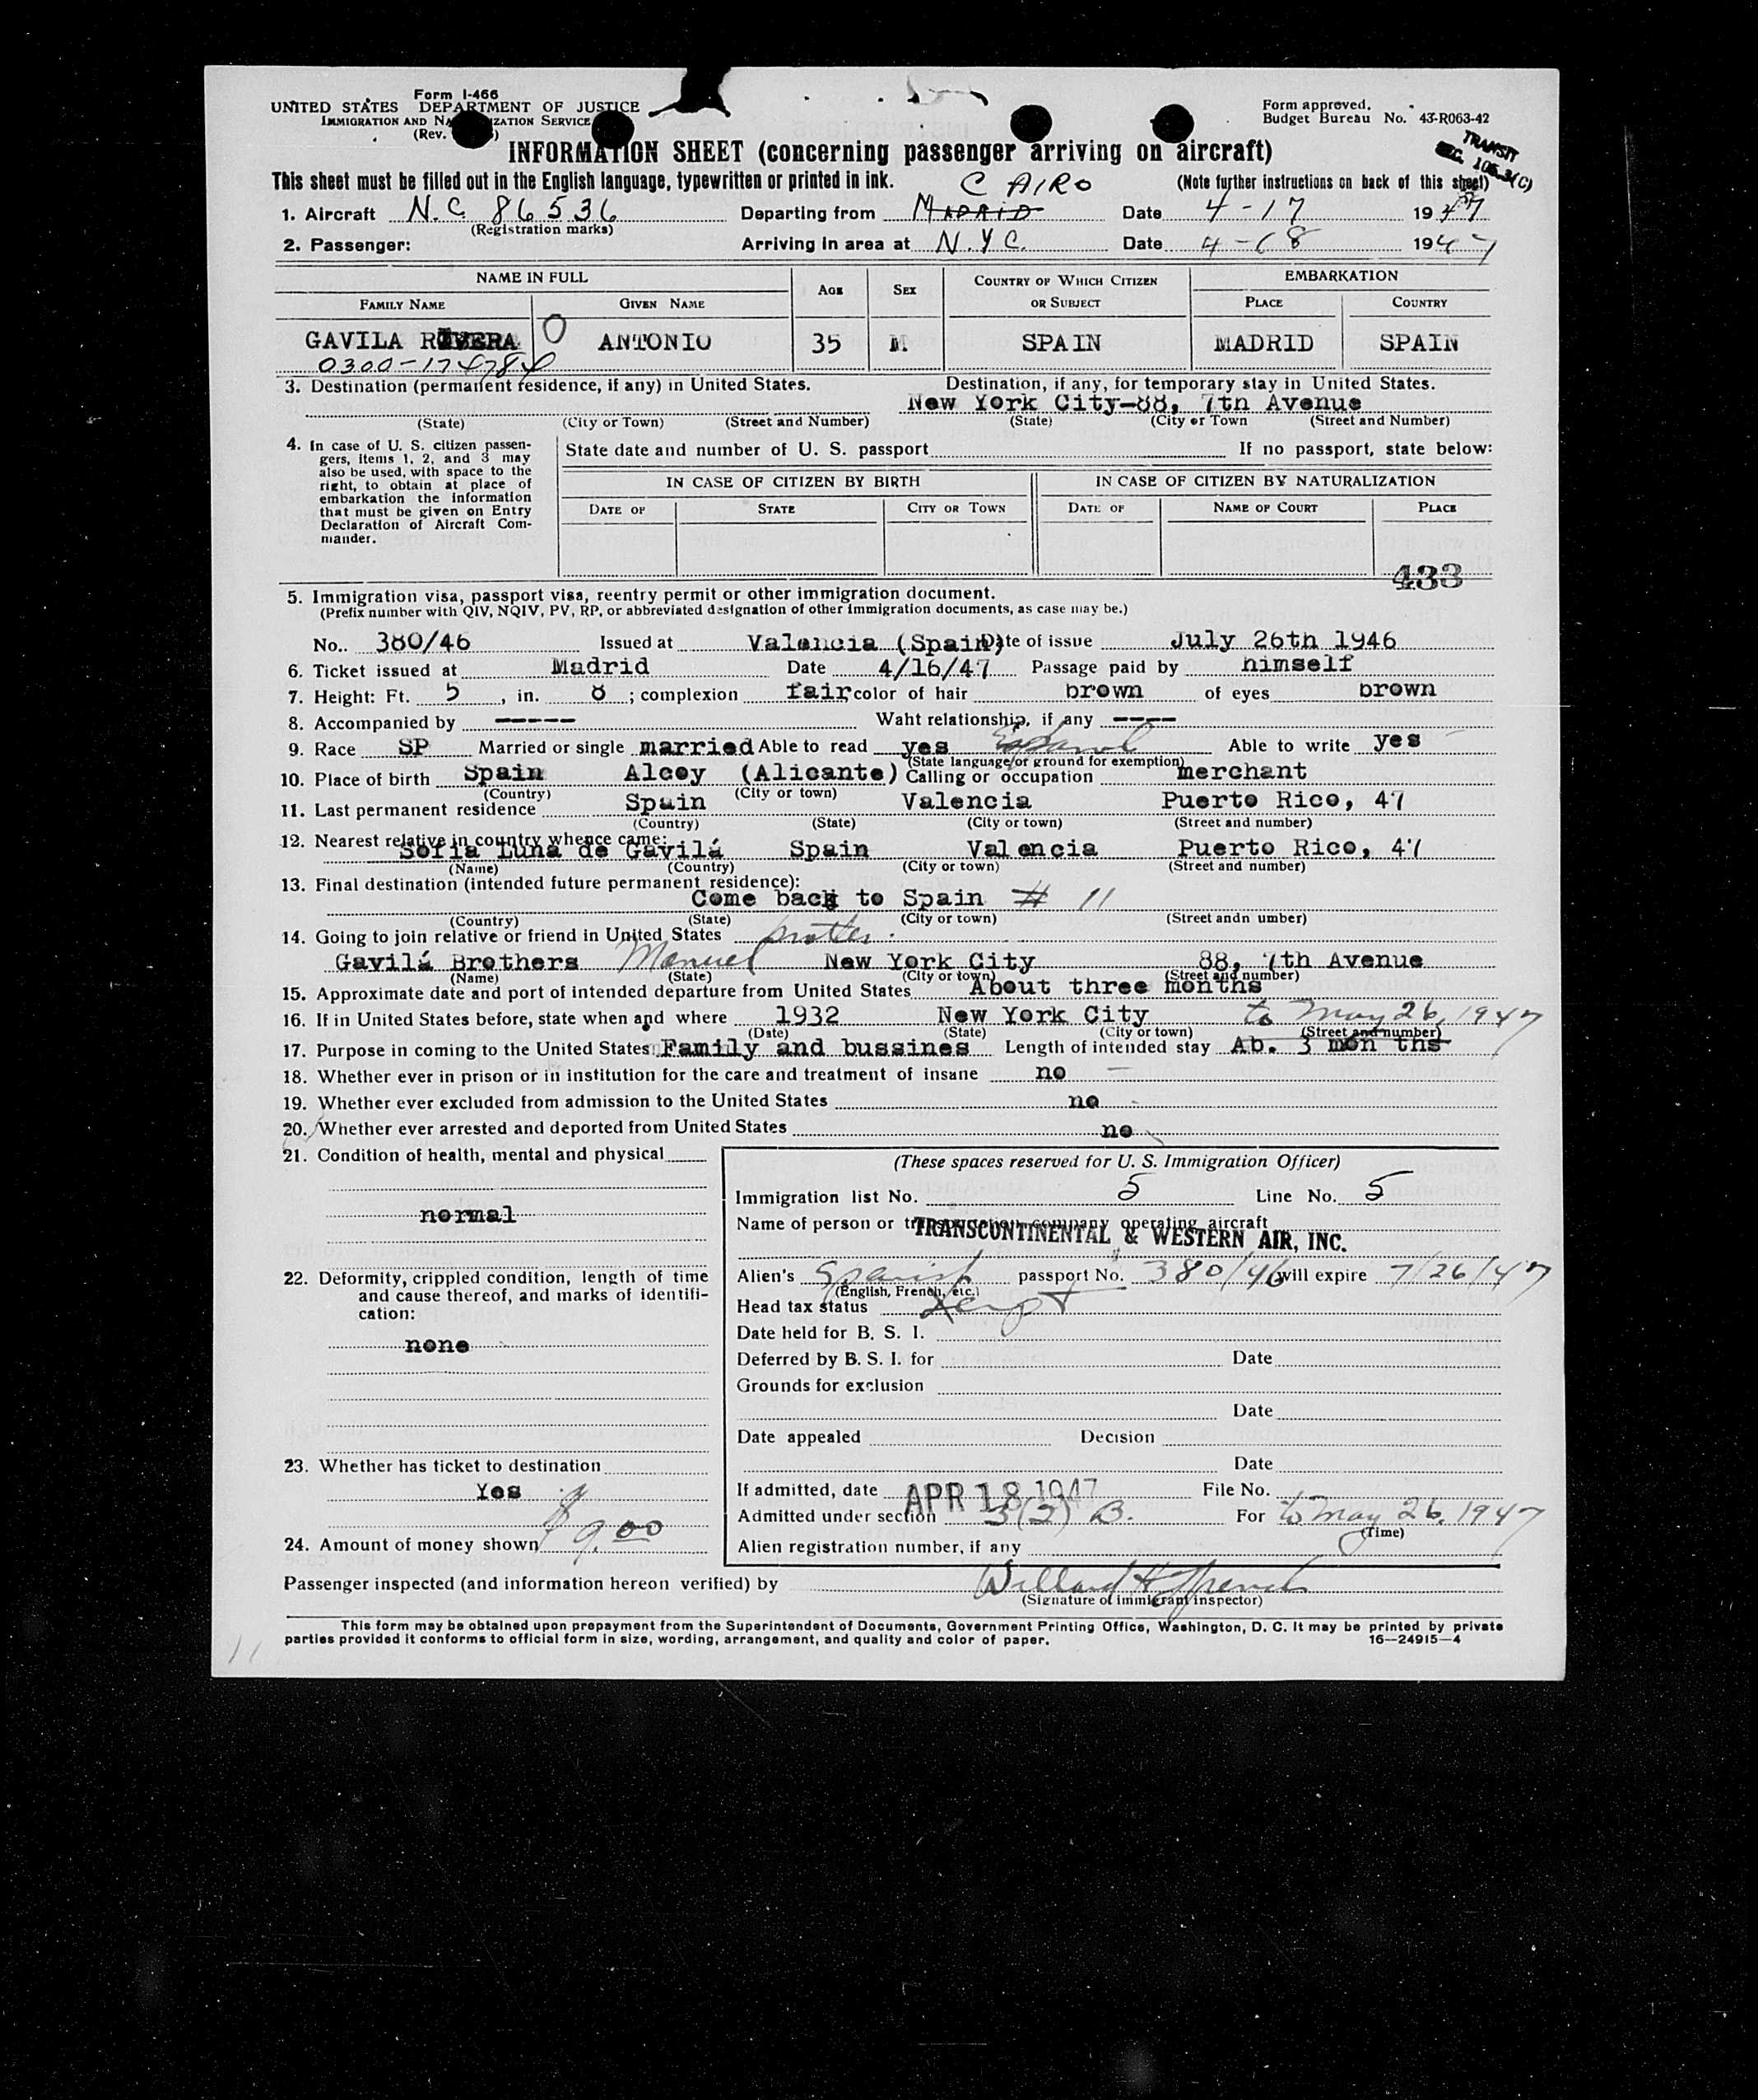 Form I-466
UNITED STATES DEPARTMENT OF JUSTICE
IMMIGRATION AND NA ZATION SERVICE
(Rev. )
Form approved.
Budget Bureau No. 43-R063-42
TRANSIT
SEC. 105.3(C)
INFORMATION SHEET (concerning passenger arriving on aircraft)
This sheet must be filled out in the English language, typewritten or printed in ink. (Note further instructions on back of this sheet)
CAIRO
1. Aircraft N.C. 86536 Departing from MADRID Date 4-17 1947
(Registration marks)
2. Passenger: Arriving in area at N.Y.C. Date 4-18 1947
NAME IN FULL AGE SEX COUNTRY OF WHICH CITIZEN OR SUBJECT EMBARKATION
FAMILY NAME GIVEN NAME PLACE COUNTRY
GAVILA R VERA O ANTONIO 35 M SPAIN MADRID SPAIN
0300-174784
3. Destination (permanent residence, if any) in United States. Destination, if any, for temporary stay in United States.
New York City-88, 7th Avenue
(State) (City or Town) (Street and Number) (State) (City or Town (Street and Number)
4. In case of U. S. citizen passen-
gers, items 1, 2, and 3 may
also be used, with space to the
right, to obtain at place of
embarkation the information
that must be given on Entry
Declaration of Aircraft Com-
mander.
State date and number of U. S. passport If no passport, state below:
IN CASE OF CITIZEN BY BIRTH IN CASE OF CITIZEN BY NATURALIZATION
DATE OF STATE CITY OR TOWN DATE OF NAME OF COURT PLACE
433
5. Immigration visa, passport visa, reentry permit or other immigration document.
(Prefix number with QIV, NQIV, PV, RP, or abbreviated designation of other immigration documents, as case may be.)
No.. 380/46 Issued at Valencia (Spain) Date of issue July 26th 1946
6. Ticket issued at Madrid Date 4/16/47 Passage paid by himself
7. Height: Ft. 5, in. 8; complexion fair color of hair brown of eyes brown
8. Accompanied by ----- Waht relationship, if any ----
9. Race SP Married or single married Able to read yes Español Able to write yes
(State language or ground for exemption)
10. Place of birth Spain Alcoy (Alicante) Calling or occupation merchant
(Country) (City or town)
11. Last permanent residence Spain Valencia Puerto Rico, 47
(Country) (State) (City or town) (Street and number)
12. Nearest relative in country whence came:
Sofia Luna de Gavilá Spain Valencia Puerto Rico, 47
(Name) (Country) (City or town) (Street and number)
13. Final destination (intended future permanent residence):
Come back to Spain # 11
(Country) (State) (City or town) (Street andn umber)
14. Going to join relative or friend in United States brother.
Gavilá Brothers Manuel New York City 88, 7th Avenue
(Name) (State) (City or town) (Street and number)
15. Approximate date and port of intended departure from United States About three months
16. If in United States before, state when and where 1932 New York City to May 26, 1947
(Date) (State) (City or town) (Street and number)
17. Purpose in coming to the United States Family and bussines Length of intended stay Ab. 3 mon ths
18. Whether ever in prison or in institution for the care and treatment of insane no
19. Whether ever excluded from admission to the United States no
20. Whether ever arrested and deported from United States no
21. Condition of health, mental and physical
normal
22. Deformity, crippled condition, length of time
and cause thereof, and marks of identifi-
cation:
none
23. Whether has ticket to destination
Yes
24. Amount of money shown $9.00
(These spaces reserved for U. S. Immigration Officer)
Immigration list No. 5 Line No. 5
Name of person or transportation company operating aircraft
TRANSCONTINENTAL & WESTERN AIR, INC.
Alien's Spanish passport No. 380/46 will expire 7/26/47
(English, French, etc.)
Head tax status
Date held for B. S. I.
Deferred by B. S. I. for Date
Grounds for exclusion
Date
Date appealed Decision
Date
If admitted, date APR 18 1947 File No.
Admitted under section 3(2) B. For to May 26, 1947
(Time)
Alien registration number, if any
Passenger inspected (and information hereon verified) by Willard H. French
(Signature of immigrant inspector)
This form may be obtained upon prepayment from the Superintendent of Documents, Government Printing Office, Washington, D. C. It may be printed by private
parties provided it conforms to official form in size, wording, arrangement, and quality and color of paper. 16—24915—4
11